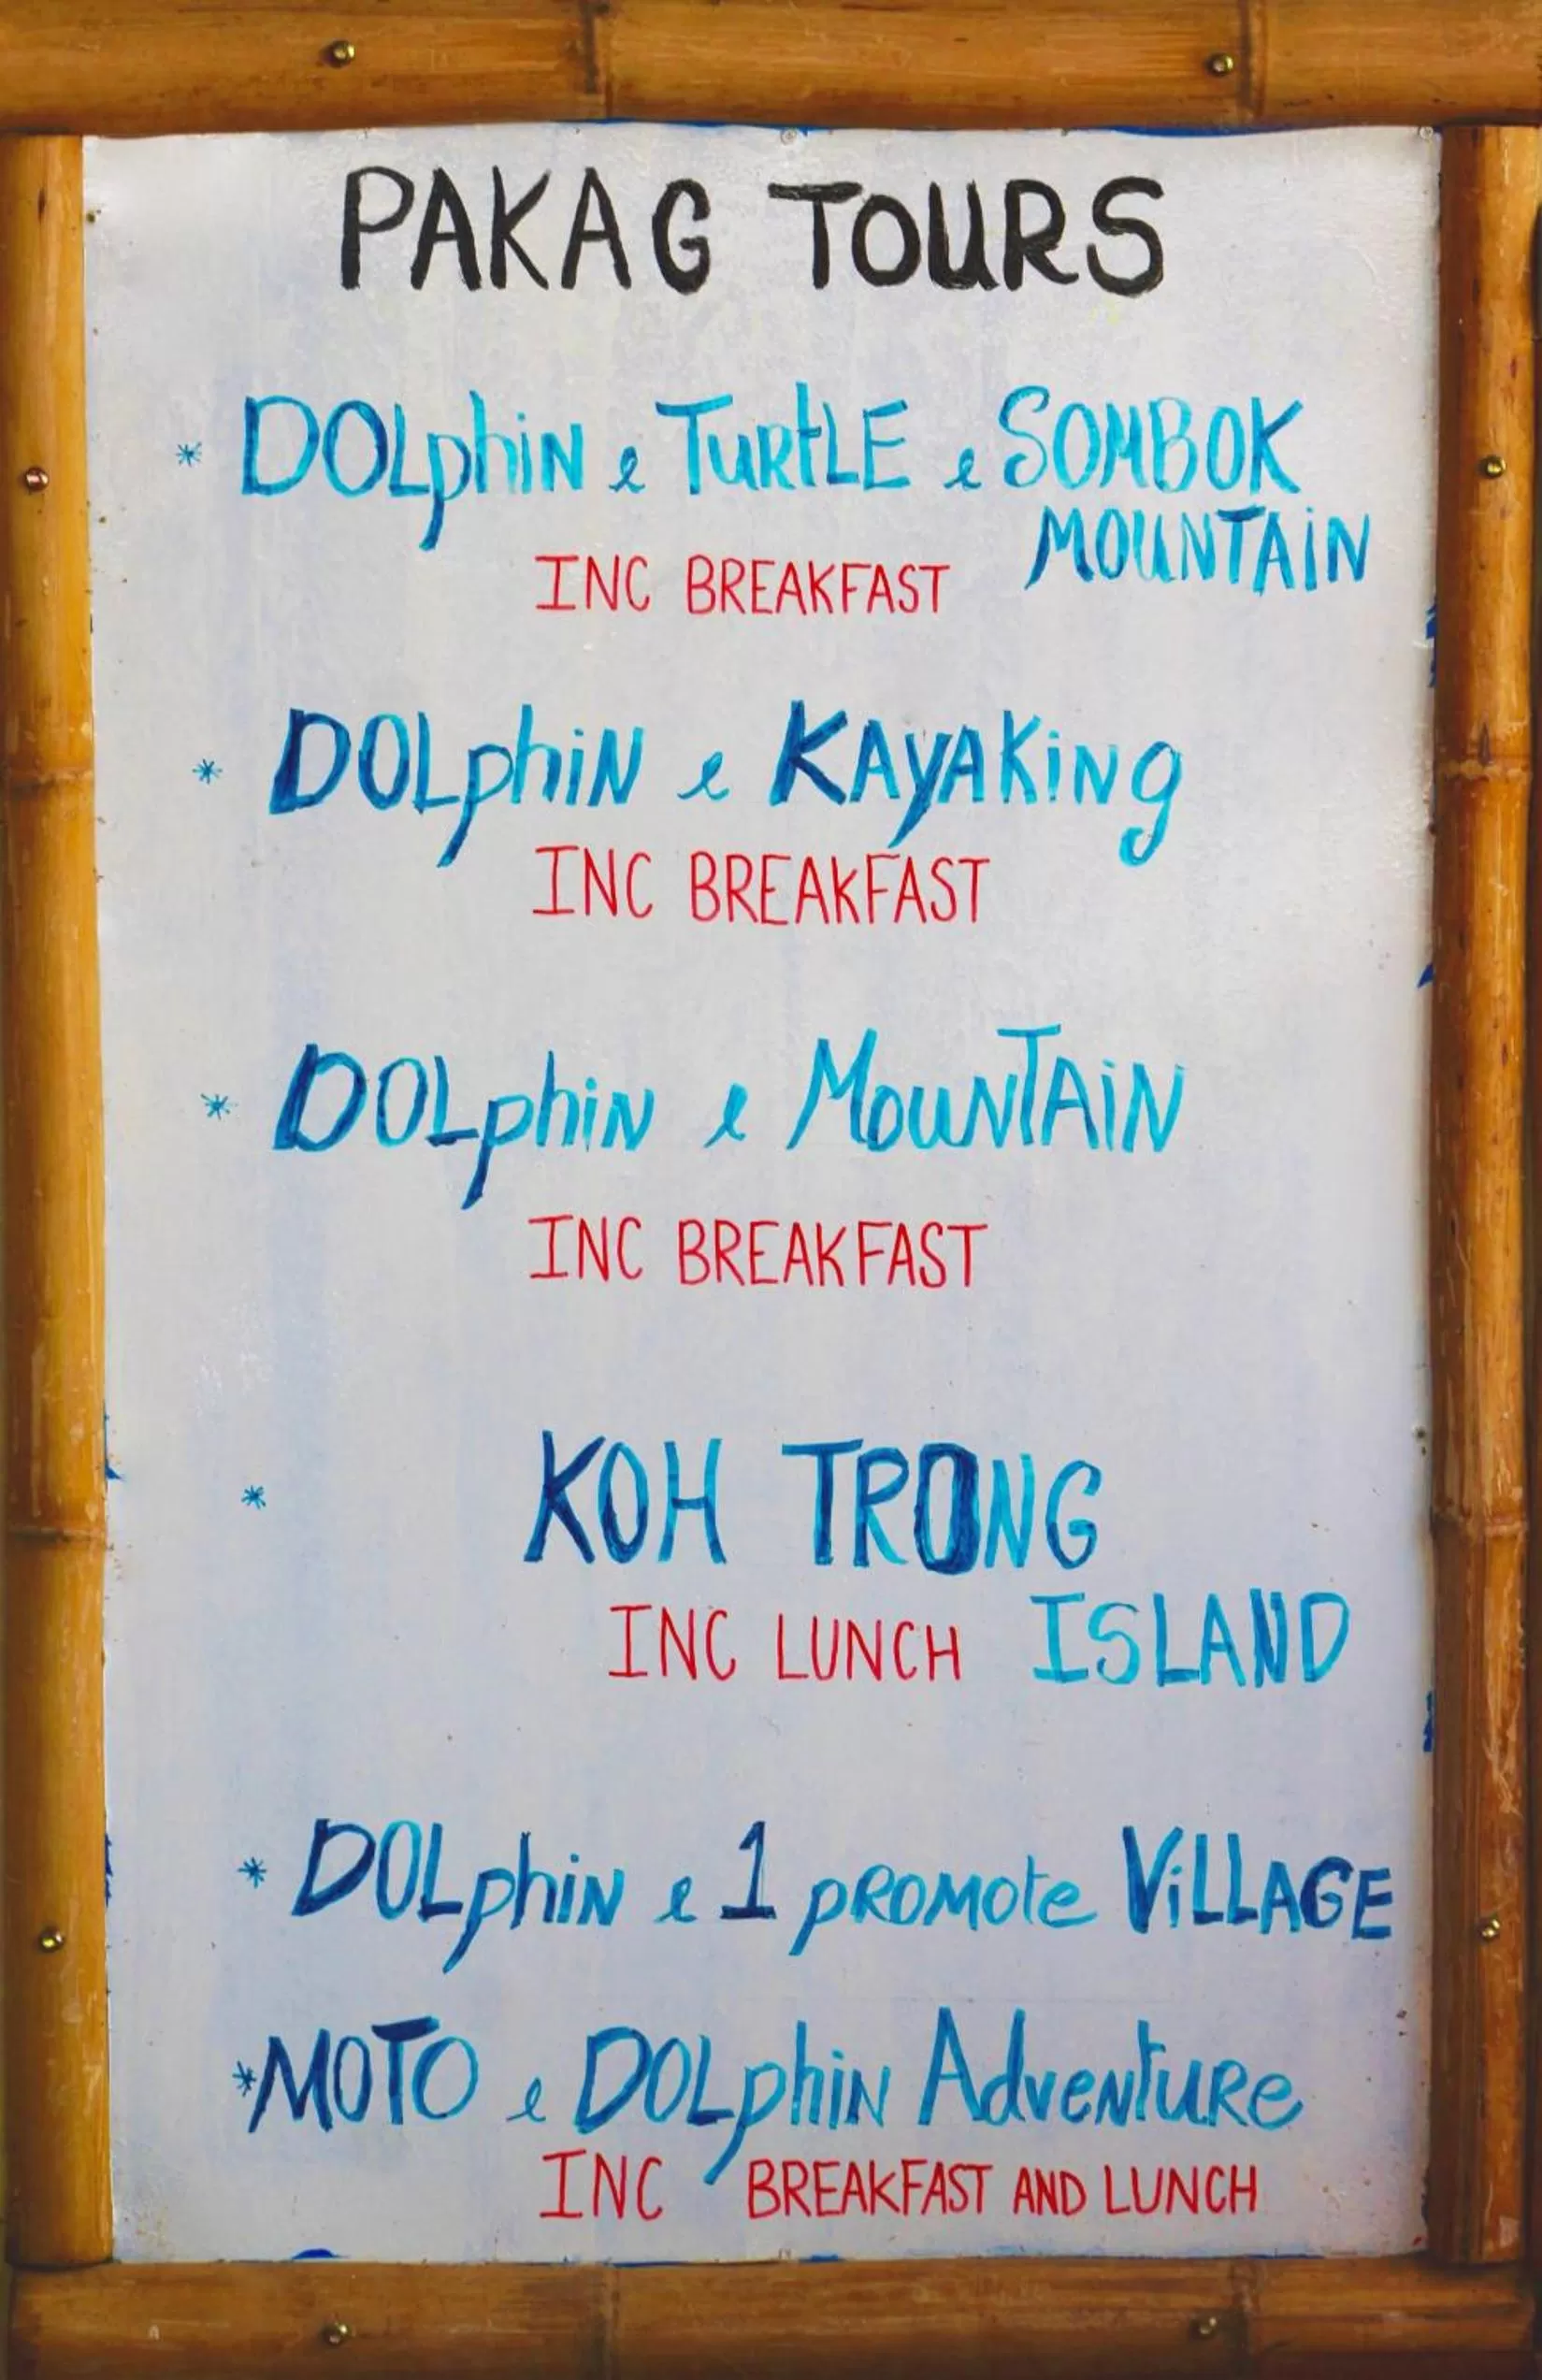 PAKAG TOURS
* DOLphiN e TURtLE e SOMBOK
MOUNTAiN
INC BREAKFAST
* DOLphiN e KAyAKiNg
INC BREAKFAST
* DOLphiN e MOUNTAiN
INC BREAKFAST
* KOH TRONG
INC LUNCH ISLAND
* DOLphiN e 1 pROMOte ViLLAGE
*MOTO e DOLphiN AdveNtURe
INC BREAKFAST AND LUNCH